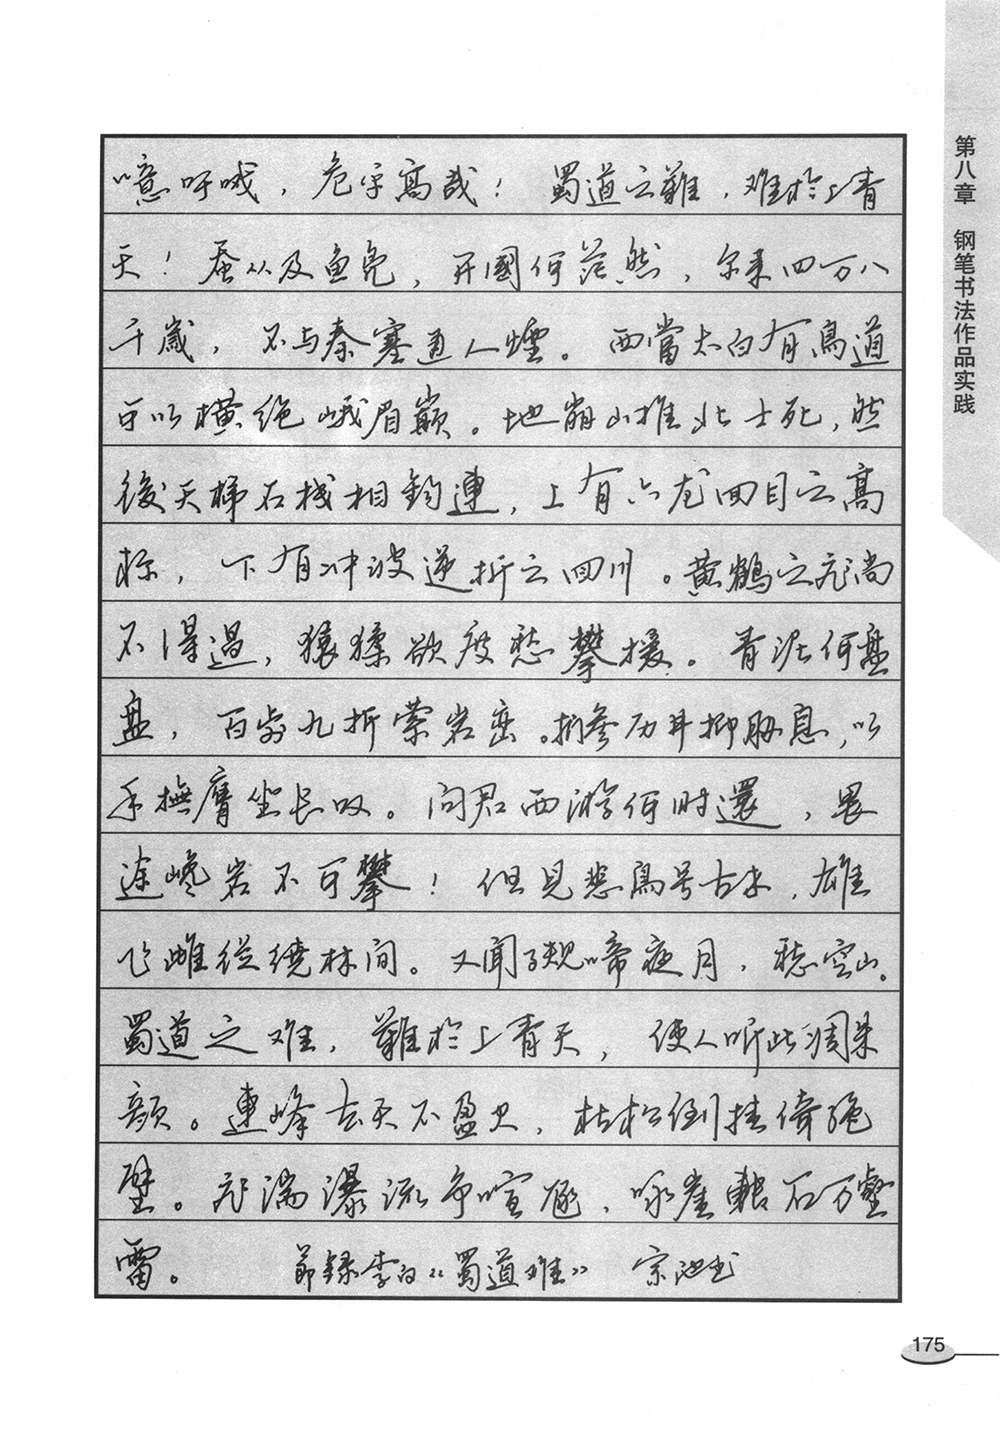 噫吁哦，危乎高哉！蜀道之難，难於上青
天！蚕丛及鱼凫，开國何茫然，尔来四万八
千歲，不与秦塞通人煙。西當太白有鳥道
可以横绝峨眉巅。地崩山摧壮士死，然
後天梯石栈相鈎連，上有六龙回日之高
标，下有冲波逆折之回川。黄鹤之飛尚
不得過，猿猱欲度愁攀援。青泥何盘
盘，百步九折萦岩峦。捫参历井抑胁息，以
手撫膺坐长叹。问君西游何时還，畏
途巉岩不可攀！但见悲鳥号古木，雄
飞雌從繞林间。又闻子规啼夜月，愁空山。
蜀道之难，難於上青天，使人听此凋朱
颜。連峰去天不盈尺，枯松倒挂倚绝
壁。飛湍瀑流争喧豗，咏崖転石万壑
雷。 節録李白《蜀道难》 宗池书
第八章 钢笔书法作品实践
175